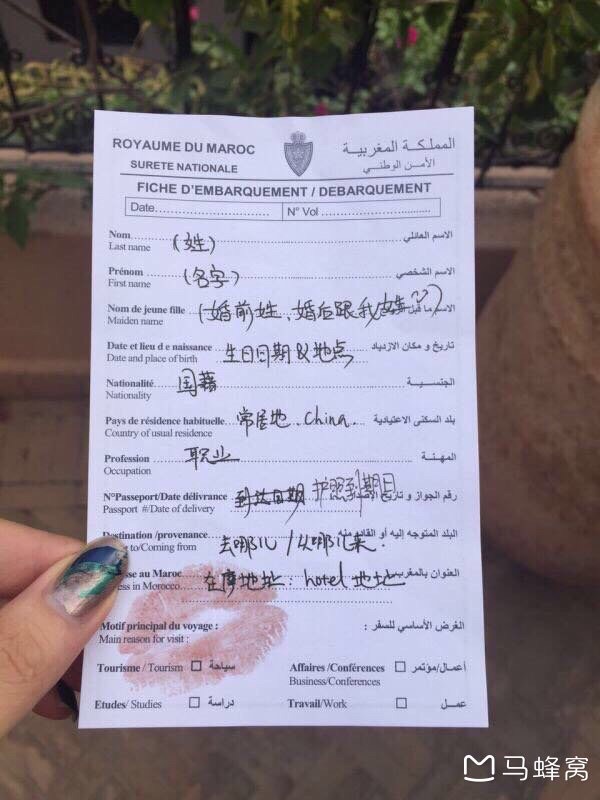 ROYAUME DU MAROC المملكة المغربية
SURETE NATIONALE الأمن الوطني
FICHE D'EMBARQUEMENT / DEBARQUEMENT
Date............................ N° Vol ............................
Nom الاسم العائلي
Last name (姓)
Prénom الاسم الشخصي
First name (名字)
Nom de jeune file الاسم ما قبل
Maiden name (婚前姓、婚后跟我姓)
Date et lieu d e naissance تاريخ و مكان الازدياد
Date and place of birth 生日日期 & 地点
Nationalité الجنسيـــة
Nationality 国籍
Pays de résidence habituelle بلد السكنى الاعتيادية
Country of usual residence 常居地. China.
Profession المهـنـة
Occupation 职业
N°Passeport/Date délivrance رقم الجواز و تاريخ
Passport #/Date of delivery 到达日期 护照到期日
Destination /provenance البلد المتوجه إليه أو القادم منه
to/Coming from 去哪儿 / 从哪儿来.
sse au Maroc العنوان بالمغرب
ess in Morocco 在摩地址: hotel 地址
Motif principal du voyage : الغرض الأساسي للسفر :
Main reason for visit :
Tourisme / Tourism ☐ سياحة Affaires /Conférences ☐ أعمال/مؤتمر
Business/Conferences
Etudes/ Studies ☐ دراسة Travail/Work ☐ عمـــل
马蜂窝